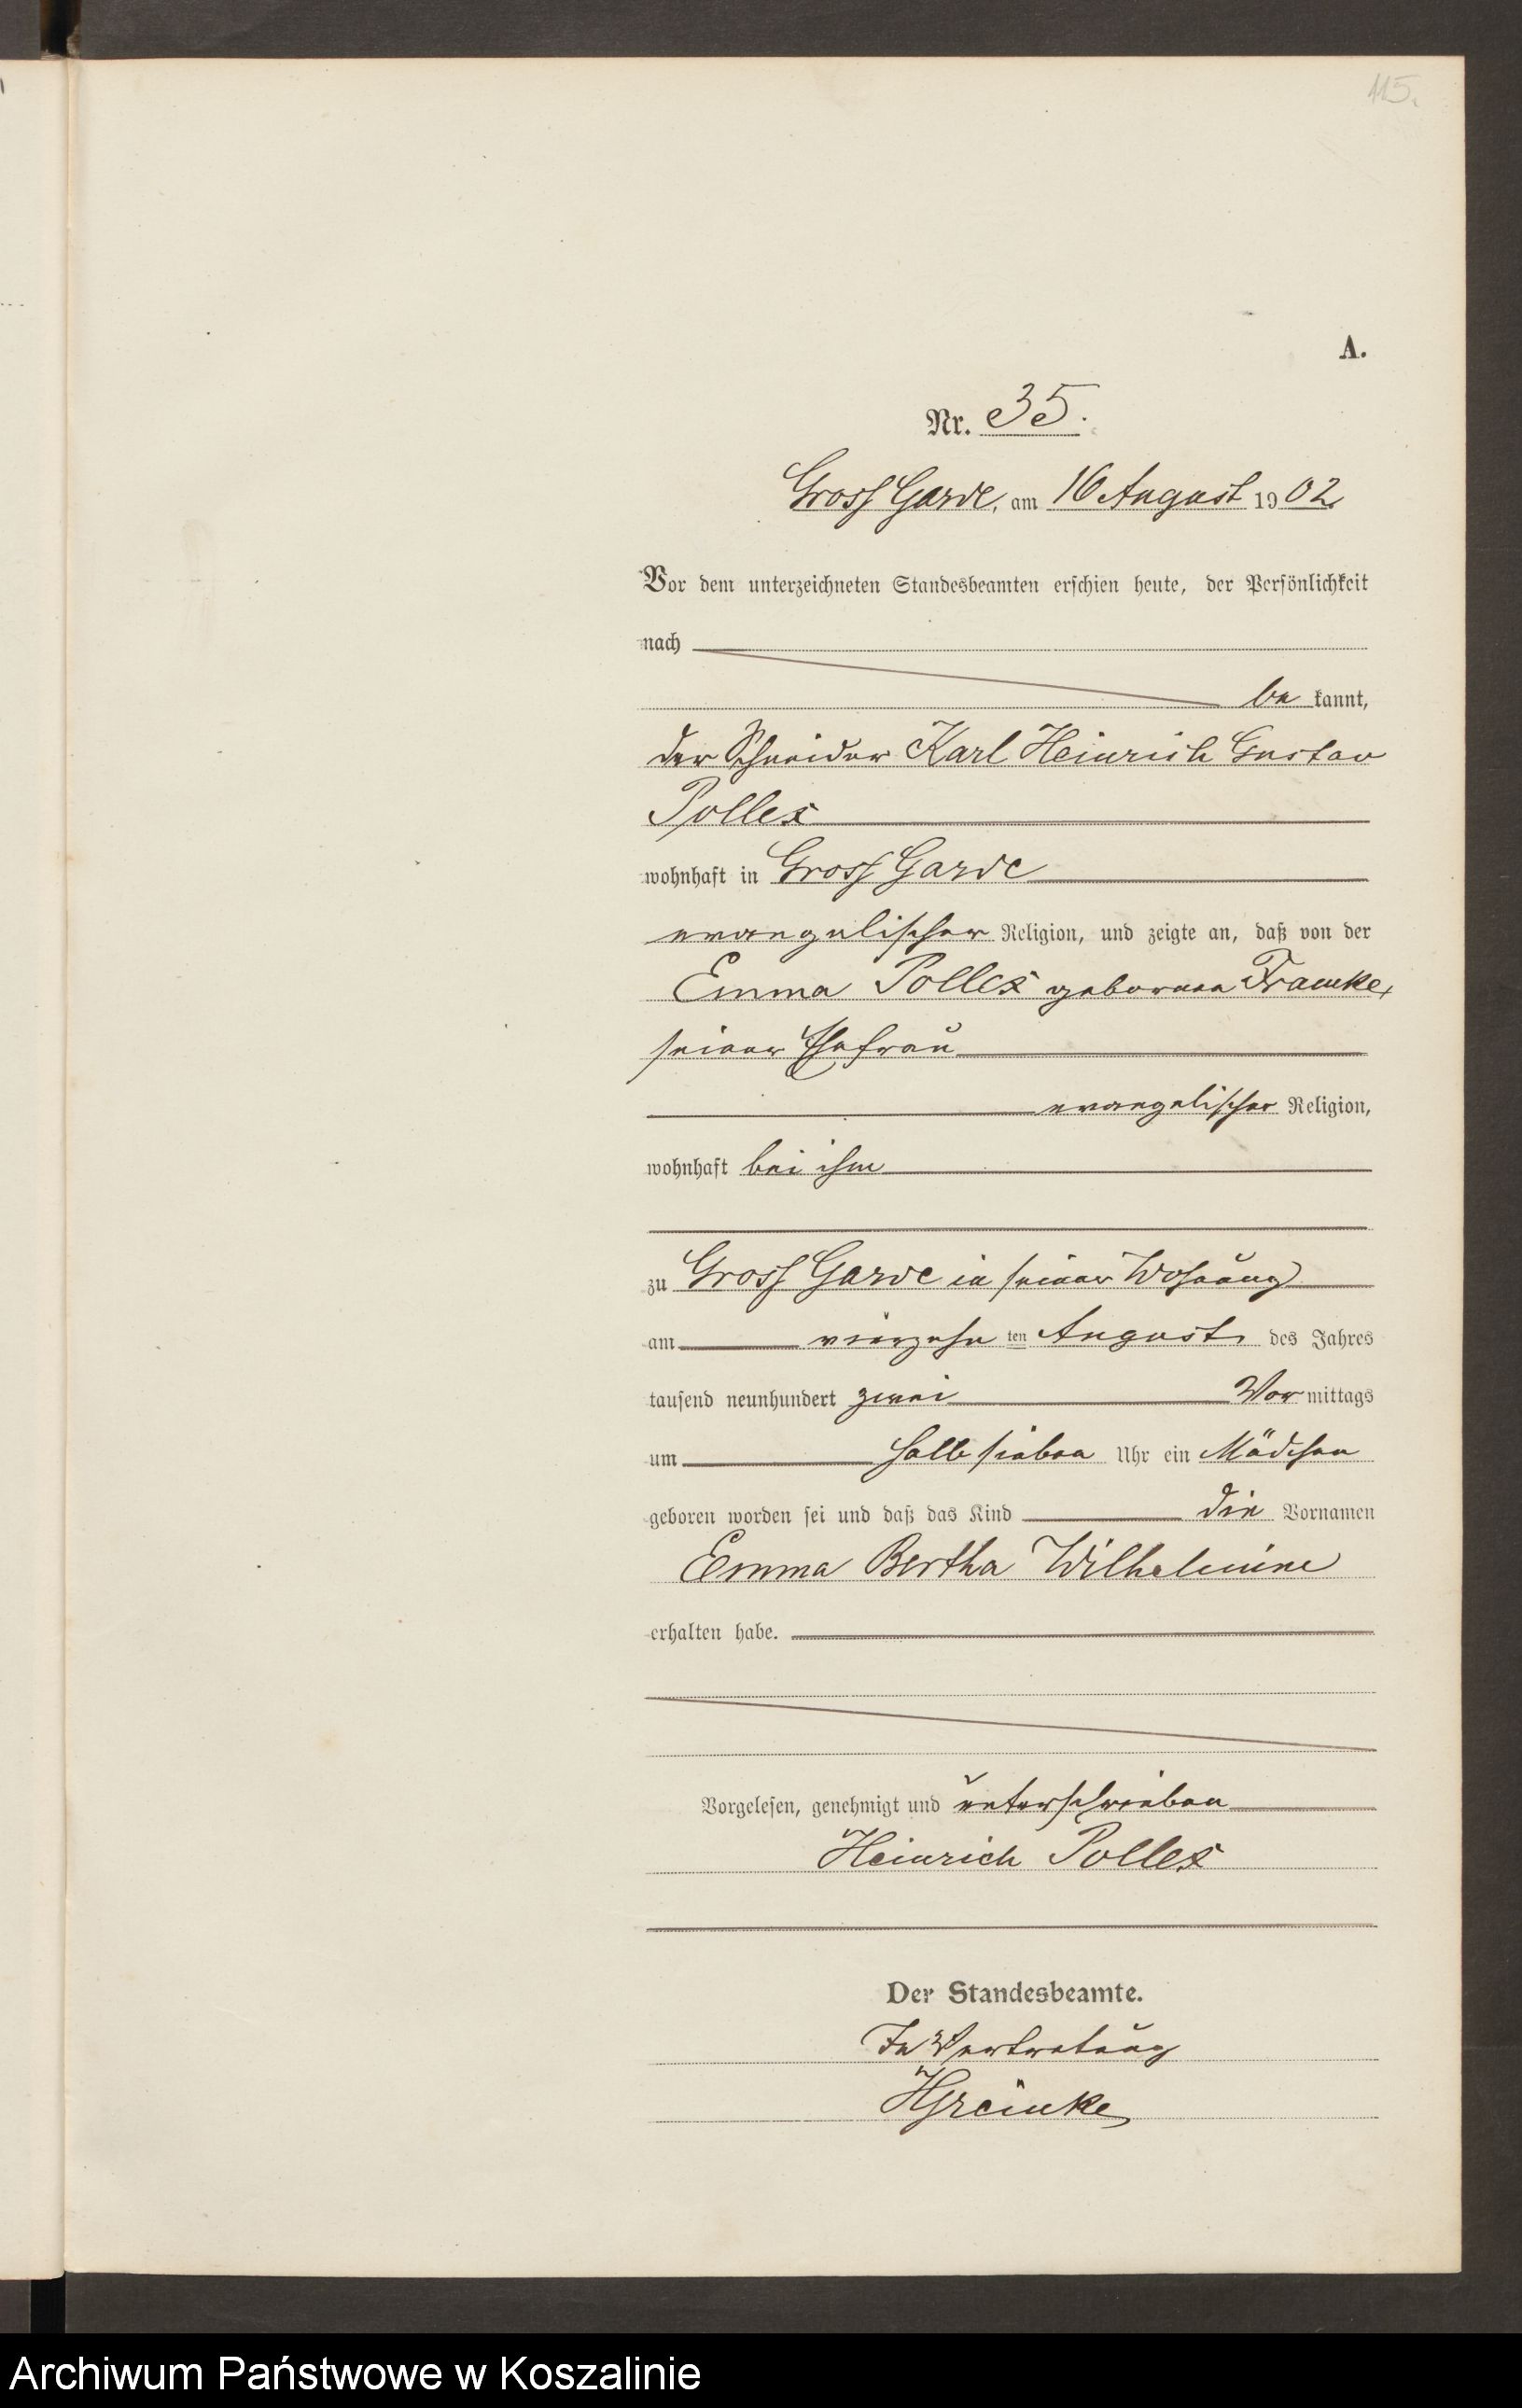 115.
A.
Nr. 35.
Gross Garde, am 16 August 1902
Vor dem unterzeichneten Standesbeamten erschien heute, der Persönlichkeit
nach
be kannt,
der Schneider Karl Heinrich Gustav
Pollex
wohnhaft in Gross Garde
evangelischer Religion, und zeigte an, daß von der
Emma Pollex geborenen Framke,
seiner Ehefrau
evangelischer Religion,
wohnhaft bei ihm
zu Gross Garde in seiner Wohnung
am vierzehn ten August des Jahres
tausend neunhundert zwei Vor mittags
um halb sieben Uhr ein Mädchen
geboren worden sei und daß das Kind die Vornamen
Emma Bertha Wilhelmine
erhalten habe.
Vorgelesen, genehmigt und unterschrieben
Heinrich Pollex
Der Standesbeamte.
In Vertretung
Archiwum Państwowe w Koszalinie